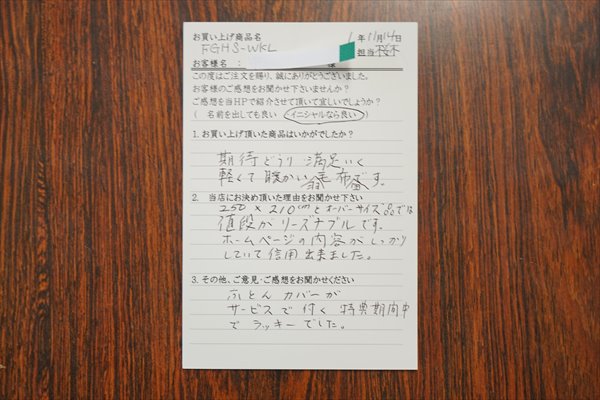 お買い上げ商品名 1年11月14日
FGHS-WKL 担当 桜木
お客様名 : 様
この度はご注文を賜り、誠にありがとうございました。
お客様のご感想をお聞かせ下さいませんか?
ご感想を当HPで紹介させて頂いて宜しいでしょうか?
( 名前を出しても良い イニシャルなら良い )
1. お買い上げ頂いた商品はいかがでしたか?
期待どうり 満足いく
軽くて暖かい 布です。
2. 当店にお決め頂いた理由をお聞かせ下さい
250×210cmとオーバーサイズ品では
値段がリーズナブルです。
ホームページの内容がしっかり
していて信用出来ました。
3. その他、ご意見・ご感想をお聞かせください
ふとんカバーが
サービスで付く 特典期間中
でラッキーでした。